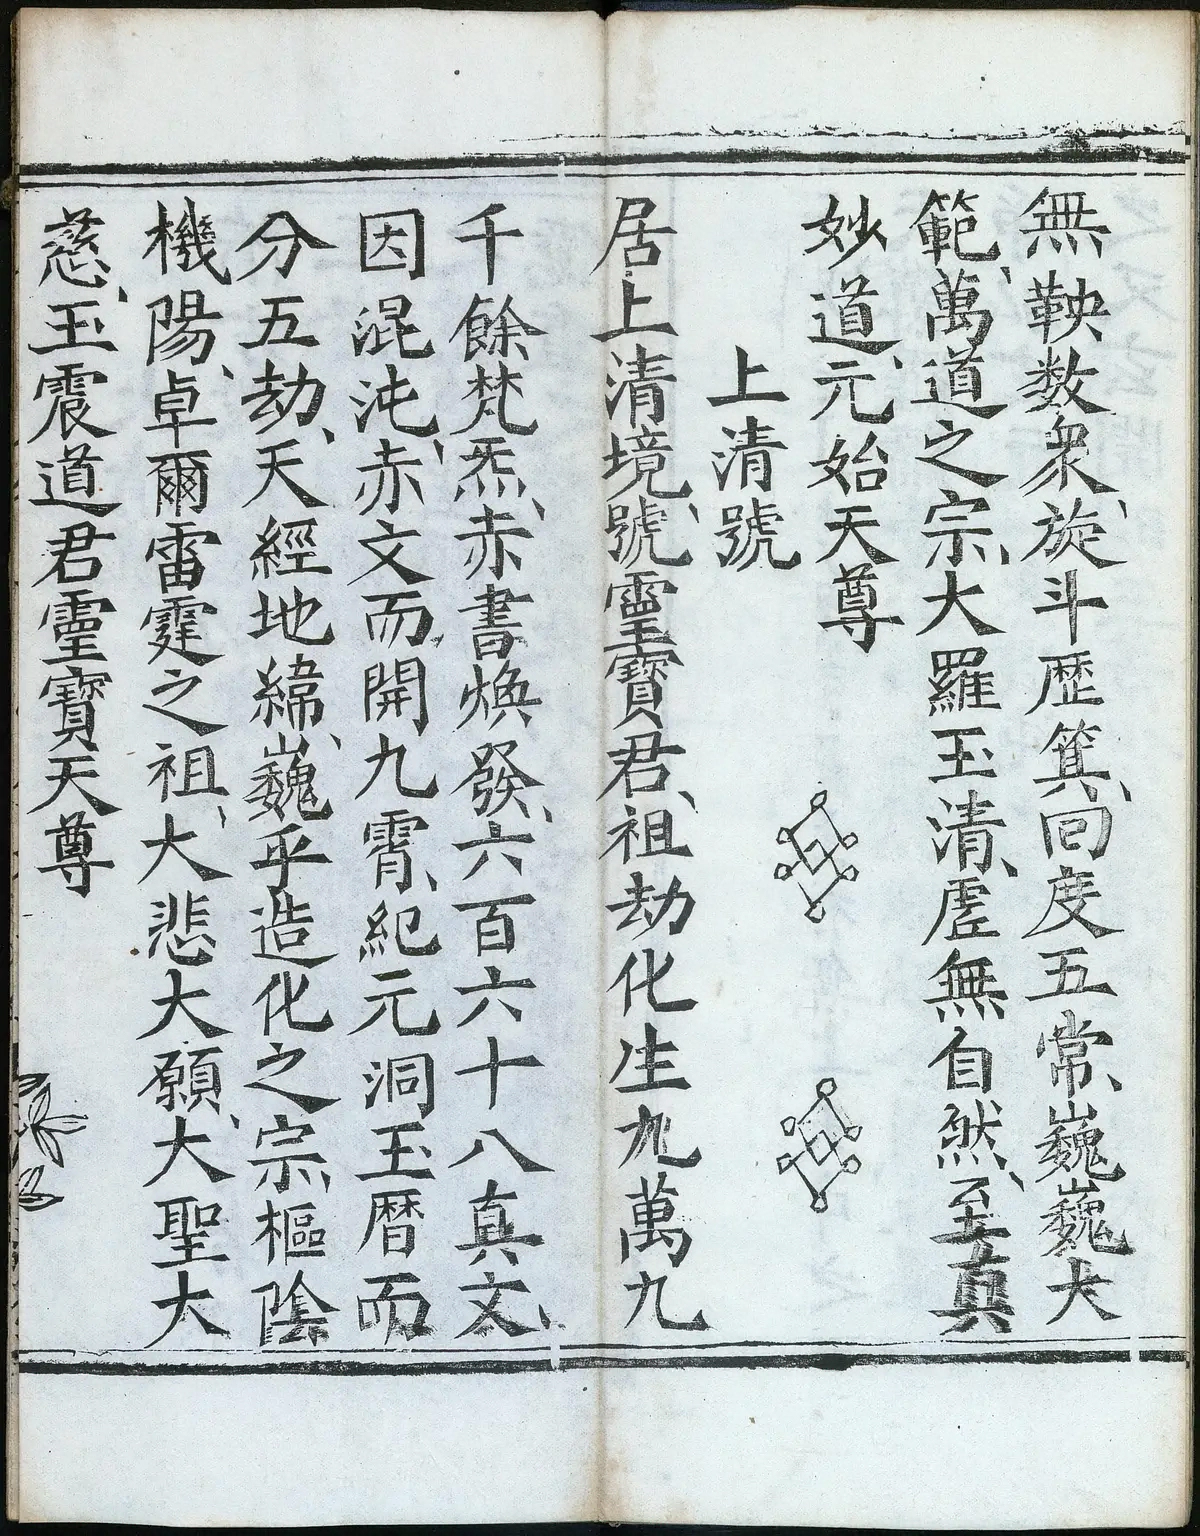 無鞅数衆、旋斗歴箕、囘度五常、巍巍大
範、萬道之宗、大羅玉清、虚無自然、至真
妙道、元始天尊
上清號
居上清境、號靈寶君、祖劫化生九萬九
千餘梵炁、赤書煥發、六百六十八真文、
因混沌、赤文而開九霄、紀元洞玉暦而
分五劫、天經地緯、巍乎造化之宗、樞陰
機陽、卓爾雷霆之祖、大悲大願、大聖大
慈、玉震道君靈寶天尊